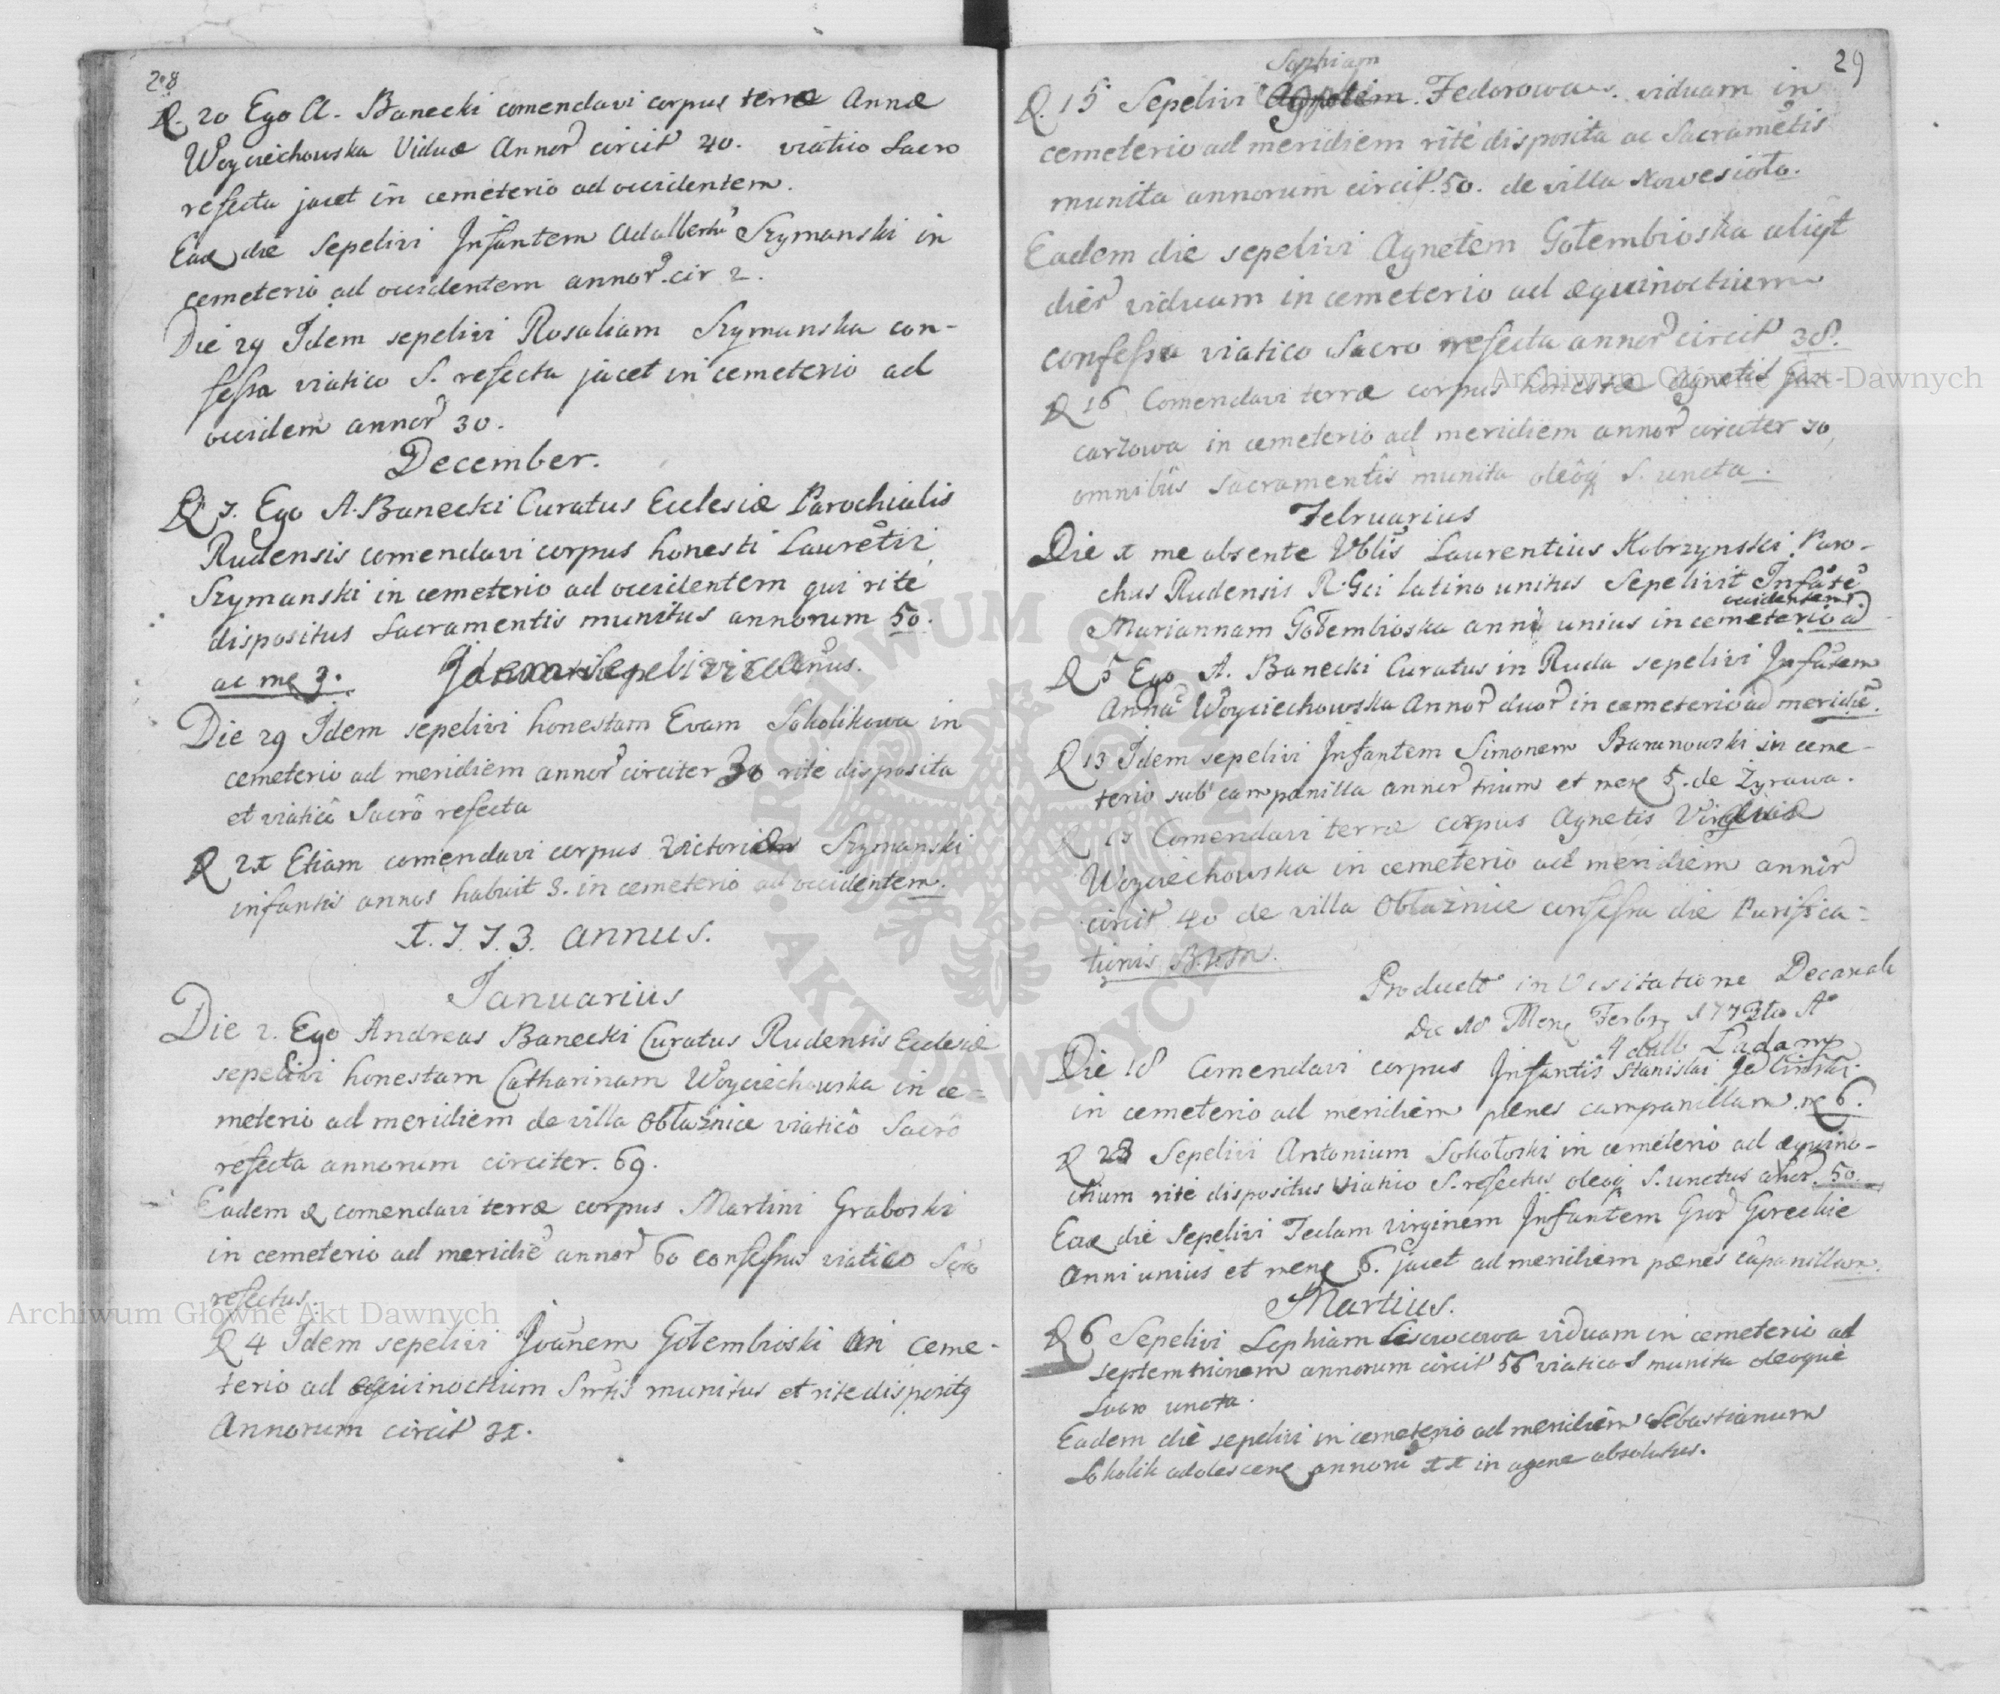 208
D. 20 Ego A. Banecki comendavi corpus terræ Annæ
Woyciechowska Viduæ Annor circit 40. viatico Sacro
refecta jacet in cemeterio ad occidentem.
Ead die sepelivi Infantem Adalbertu Szymanski in
cemeterio ad occidentem annor. cir 2.
Die 29 Idem sepelivi Rosaliam Szymanska con-
fessa viatico S. refecta jacet in cemeterio ad
occidem annor 30.
December.
D 7. Ego A. Banecki Curatus Ecclesiæ Parochialis
Rudensis comendavi corpus honesti Lauretii
Szymanski in cemeterio ad occidentem qui rite
dispositus Sacramentis munitus annorum 50.
ac me 3.
Die 29 Idem sepelivi honestam Evam Sokolikowa in
cemeterio ad meridiem annor circiter 30 rite disposita
et viaticô Sacrô refecta
D 21 Etiam comendavi corpus Szymanski
infantis annos habuit 3. in cemeterio ad occidentem.
1.7.7.3. annus.
Januarius
Die 2. Ego Andreas Banecki Curatus Rudensis Ecclesiæ
sepelivi honestam Catharinam Woyciechowska in ce=
meterio ad meridiem de villa Obłaźnice viaticô Sacrô
refecta annorum circiter. 69.
Eadem d comendavi terræ corpus Martini Graboski
in cemeterio ad meridiê annor 60 confessus viatico Sacro
refectus.
D 4 Idem sepelivi Joânem Gołembioski in ceme-
terio ad æquinoctium munitus et rite disposit9
Annorum circit 31.
29
Sophiam
D. 15 Sepelivi Fedorowa viduam in
cemeterio ad meridiem rite disposita ac Sacrametis
munita annorum circit. 50. de villa Nowesioło.
Eadem die sepelivi Agnetem Gołembioska aliqt
dier viduam in cemeterio ad æquinoctium
confessa viatico Sacro refecta annor circit 38.
D 16 Comendavi terræ corpus honestæ Agnetis
carzowa in cemeterio ad meridiem annor circiter 30
omnibus sacramentis munita oleoq S. uncta.
Februarius
Die 1 me absente Laurentius Kobrzynski Paro-
chus Rudensis R. Gci latino unitus Sepelivit Infate
occidentem
Mariannam Gołembioska anni unius in cemeterio ad
D 5 Ego A. Banecki Curatus in Ruda sepelivi Infatem
Anna Woyciechowska Annor duor in cemeterio ad meridiê.
D 13 Idem sepelivi Infantem Simonem Baranowski in ceme-
terio sub campanilla annor trium et mens 5. de Żyrawa.
D 13 Comendavi terræ corpus Agnetis
Woyciechowska in cemeterio ad meridiem annor
circit 40 de villa Obłaźnice confessa die Purifica=
tionis B.V.M.
Product in Visitatione Decanali
Die 18 Mens Febr 1773tio A°
Die 18 Comendavi corpus Infantis Stanislai
in cemeterio ad meridiem penes campanillam. m 6.
D 23 Sepelivi Antonium Sokołoski in cemeterio ad æquino-
ctium rite dispositus viatico S. refectus oleoq S. unctus anor. 50.
Ead die sepelivi Teclam virginem Infantem Goreckie
Anni unius et mens 6. jacet ad meridiem pænes cãpanillam.
Martius.
D 6 Sepelivi Sophiam viduam in cemeterio ad
septemtrionem annorum circit 56 viatico S munita oleoque
Sacro uncta.
Eadem die sepelivi in cemeterio ad meridiem Sebastianum
Sokolik adolescens annoru 11 in agone absolutus.
Archiwum Główne Akt Dawnych
Archiwum Główne Akt Dawnych
ARCHIWUM GŁÓWNE
AKT DAWNYCH